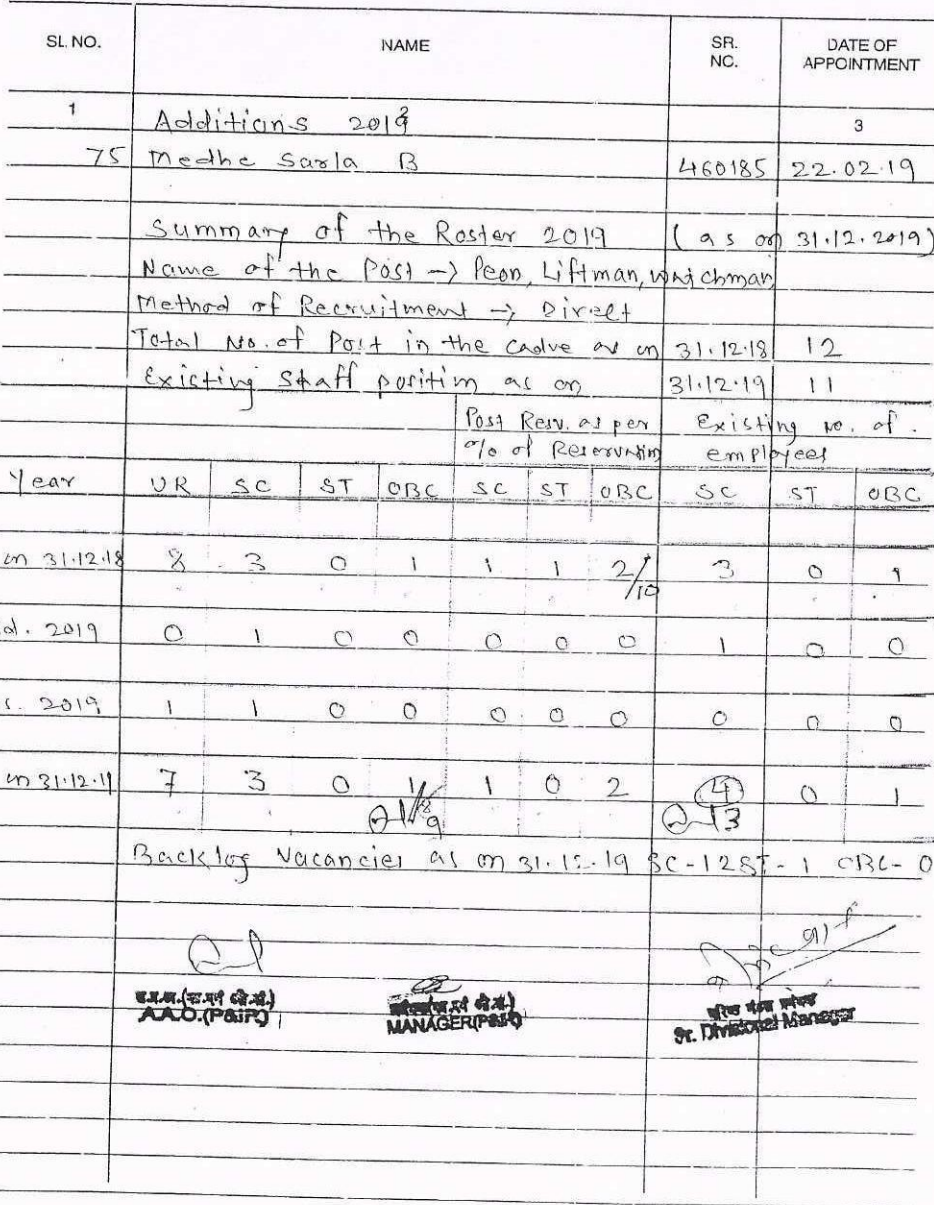 SL. NO. NAME SR. NC. DATE OF APPOINTMENT
1 3
Additions 2019
75 Medhe Sarla B 460185 22.02.19
Summary of the Roster 2019 (as on 31.12.2019)
Name of the Post → Peon, Liftman, watchman
Method of Recruitment → Direct
Total No. of Post in the cadre as on 31.12.18 12
Existing Staff position as on 31.12.19 11
Post Resv. as per % of Reservation Existing No. of employees
Year UR SC ST OBC SC ST OBC SC ST OBC
on 31.12.18 8 3 0 1 1 1 2/10 3 0 1
d. 2019 0 1 0 0 0 0 0 1 0 0
s. 2019 1 1 0 0 0 0 0 0 0 0
on 31.12.19 7 3 0 1 1 0 2 4 0 1
13
Backlog Vacancies as on 31.12.19 SC-12 ST-1 OBC-0
A.A.O.(P&IR) MANAGER(P&IR) Sr. Divisional Manager